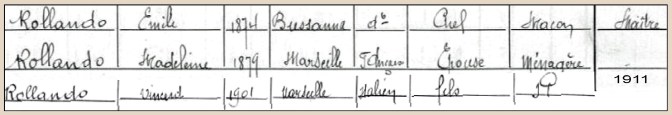 Rollando Emile 1874 Bussanna do Chef Maçon Maître
Rollando Madeleine 1879 Marseille Epouse Ménagère
1911
Rollando Vincent 1901 Marseille Italien fils